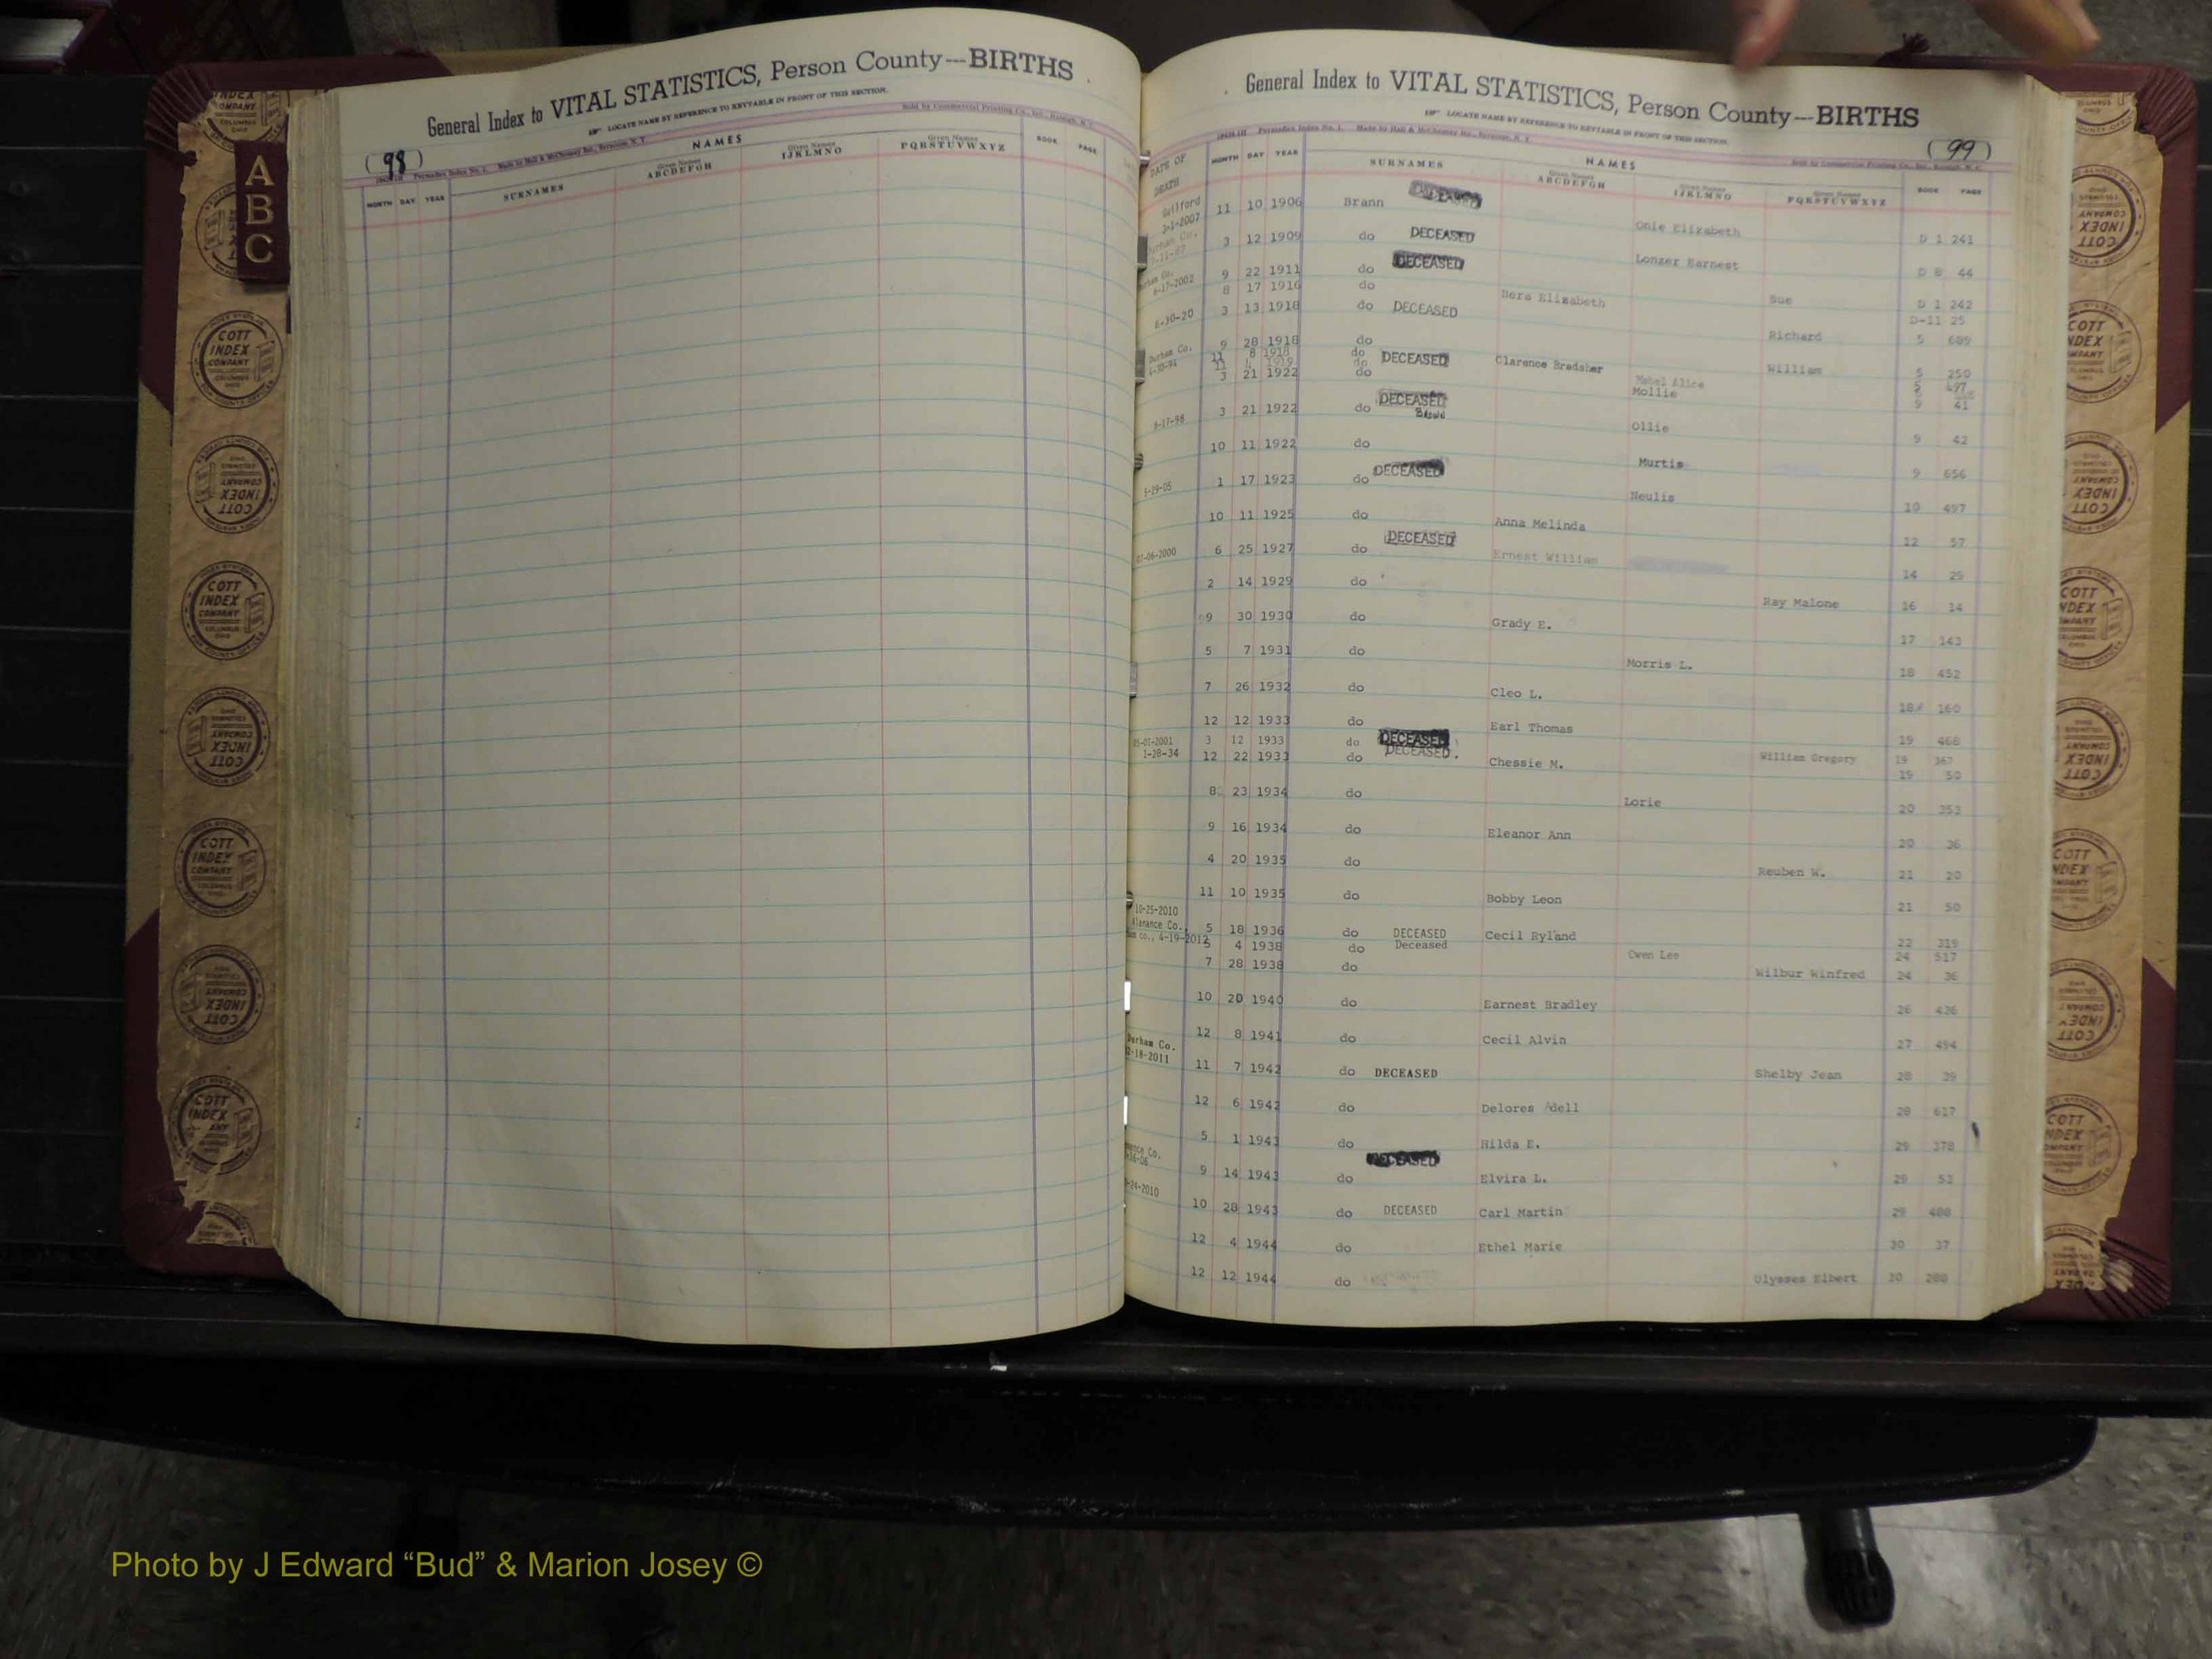 General Index to VITAL STATISTICS, Person County---BIRTHS
LOCATE NAME BY REFERENCE TO KEYTABLE IN FRONT OF THIS SECTION.
(98)
NAMES
MONTH DAY YEAR SURNAMES Given Names ABCDEFGH Given Names IJKLMNO Given Names PQRSTUVWXYZ BOOK PAGE
A
B
C
General Index to VITAL STATISTICS, Person County---BIRTHS
LOCATE NAME BY REFERENCE TO KEYTABLE IN FRONT OF THIS SECTION.
(99)
NAMES
DATE OF DEATH MONTH DAY YEAR SURNAMES Given Names ABCDEFGH Given Names IJKLMNO Given Names PQRSTUVWXYZ BOOK PAGE
Guilford 11 10 1906 Brann DECEASED Onie Elizabeth D 1 241
3 12 1909 do DECEASED Lonzer Earnest D 8 44
6-17-2002 9 22 1911 do DECEASED Sue D 1 242
8 17 1916 do Bera Elizabeth D-11 25
6-30-20 3 13 1918 do DECEASED Richard 5 689
9 28 1918 do William 5 250
Durham Co. 11 8 1918 do DECEASED Clarence Bradsher 5 497
do Mabel Alice
3 21 1922 do Mollie 9 41
3 21 1922 do DECEASED Ollie 9 42
10 11 1922 do Murtis 9 656
1 17 1923 do DECEASED Neulis 10 497
10 11 1925 do Anna Melinda 12 57
07-06-2000 6 25 1927 do DECEASED Ernest William 14 25
2 14 1929 do Ray Malone 16 14
9 30 1930 do Grady E. 17 143
5 7 1931 do Morris L. 18 452
7 26 1932 do Cleo L. 18 160
12 12 1933 do Earl Thomas 19 468
05-07-2001 3 12 1933 do DECEASED William Gregory 19 367
1-28-34 12 22 1933 do DECEASED. Chessie M. 19 50
8 23 1934 do Lorie 20 353
9 16 1934 do Eleanor Ann 20 36
4 20 1935 do Reuben W. 21 20
11 10 1935 do Bobby Leon 21 50
10-25-2010
Alamance Co. 5 18 1936 do DECEASED Cecil Ryland 22 319
4-19-2012 5 4 1938 do Deceased Owen Lee 24 517
7 28 1938 do Wilbur Winfred 24 36
10 20 1940 do Earnest Bradley 26 426
12 8 1941 do Cecil Alvin 27 494
Durham Co.
11 7 1942 do DECEASED Shelby Jean 28 39
12 6 1942 do Delores Adell 28 617
5 1 1943 do Hilda E. 29 378
9 14 1943 do DECEASED Elvira L. 29 53
10 28 1943 do DECEASED Carl Martin 29 488
12 4 1944 do Ethel Marie 30 37
12 12 1944 do Ulysses Elbert 30 288
COTT INDEX COMPANY COLUMBUS OHIO
Photo by J Edward “Bud” & Marion Josey ©